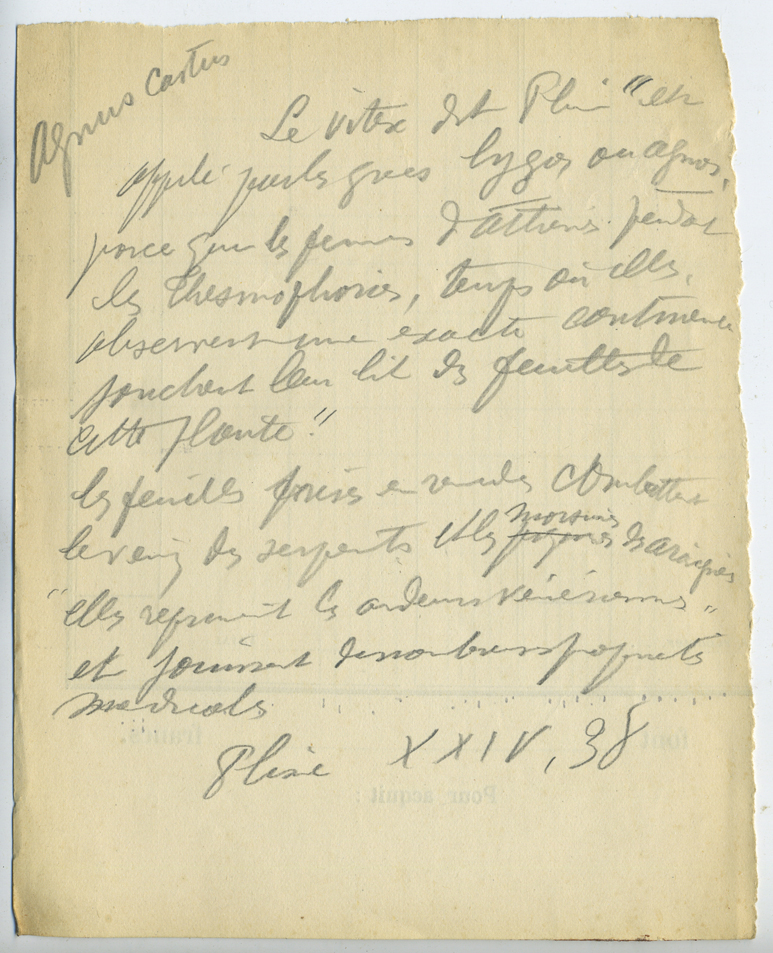 Agnus Castus
Le vitex dit Pline "est
appelé par les grecs lygos ou agnos,
parce que les femmes d'Athènes pendant
les Thesmophories, temps où elles
observent une exacte continence
jonchent leur lit des feuilles de
cette plante."
les feuilles prises en combattent
le venin des serpents et les morsures des araignées
"elles repriment les ardeurs vénériennes"
et jouissent de nombreuses propriétés
medicales
Pline XXIV, 38
font francs.
Pour acquit :